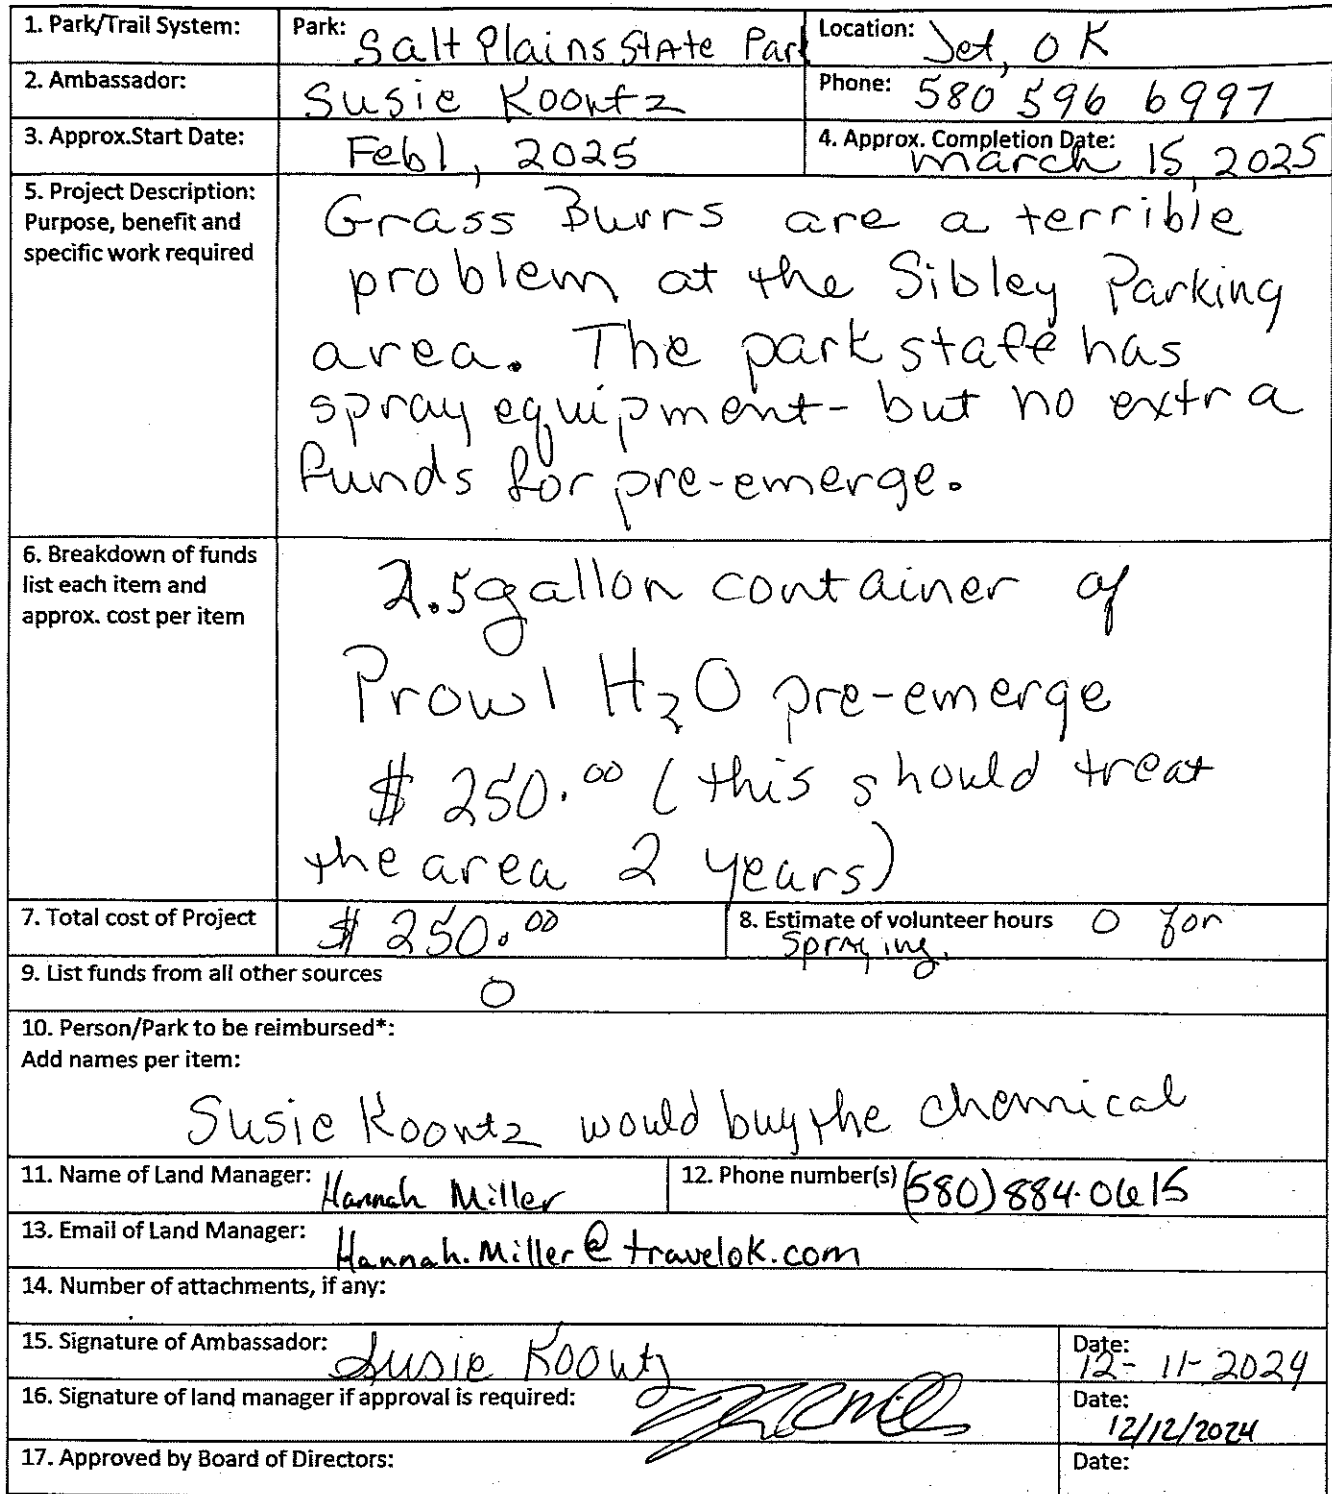 1. Park/Trail System: Park: Salt Plains State Park Location: Jet, OK
2. Ambassador: Susie Koontz Phone: 580 596 6997
3. Approx.Start Date: Feb 1, 2025 4. Approx. Completion Date: March 15, 2025
5. Project Description: Grass Burrs are a terrible
Purpose, benefit and problem at the Sibley Parking
specific work required area. The park staff has
spray equipment - but no extra
funds for pre-emerge.
6. Breakdown of funds
list each item and 2.5 gallon container of
approx. cost per item Prowl H2O pre-emerge
$ 250.00 (this should treat
the area 2 years)
7. Total cost of Project $ 250.00 8. Estimate of volunteer hours 0 for
spraying.
9. List funds from all other sources 0
10. Person/Park to be reimbursed*:
Add names per item:
Susie Koontz would buy the chemical
11. Name of Land Manager: Hannah Miller 12. Phone number(s) (580) 884-0615
13. Email of Land Manager: Hannah.Miller@travelok.com
14. Number of attachments, if any:
15. Signature of Ambassador: Susie Koontz Date: 12-11-2024
16. Signature of land manager if approval is required: Date: 12/12/2024
17. Approved by Board of Directors: Date: